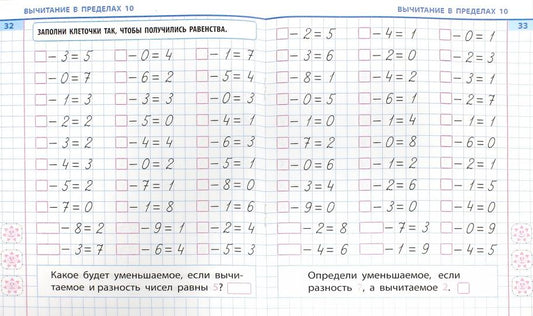 ВЫЧИТАНИЕ В ПРЕДЕЛАХ 10
32
ЗАПОЛНИ КЛЕТОЧКИ ТАК, ЧТОБЫ ПОЛУЧИЛИСЬ РАВЕНСТВА.
- 3 = 5 - 0 = 4 - 1 = 7
- 0 = 7 - 6 = 2 - 5 = 4
- 1 = 3 - 3 = 3 - 0 = 3
- 2 = 2 - 5 = 0 - 4 = 1
- 3 = 2 - 4 = 4 - 6 = 3
- 4 = 3 - 0 = 2 - 5 = 1
- 5 = 2 - 7 = 1 - 8 = 0
- 7 = 0 - 1 = 8 - 1 = 6
- 8 = 2 - 9 = 1 - 2 = 4
- 3 = 7 - 6 = 4 - 5 = 3
Какое будет уменьшаемое, если вычи-
таемое и разность чисел равны 5?
ВЫЧИТАНИЕ В ПРЕДЕЛАХ 10
33
- 2 = 5 - 4 = 1 - 0 = 1
- 3 = 6 - 2 = 0 - 2 = 3
- 8 = 1 - 4 = 2 - 3 = 1
- 0 = 5 - 6 = 1 - 2 = 7
- 1 = 0 - 1 = 4 - 1 = 1
- 7 = 2 - 0 = 8 - 6 = 0
- 0 = 6 - 1 = 2 - 2 = 1
- 3 = 4 - 2 = 6 - 1 = 5
- 9 = 0 - 3 = 0 - 4 = 0
- 2 = 8 - 7 = 3 - 0 = 9
- 4 = 6 - 1 = 9 - 4 = 5
Определи уменьшаемое, если
разность , а вычитаемое 2.